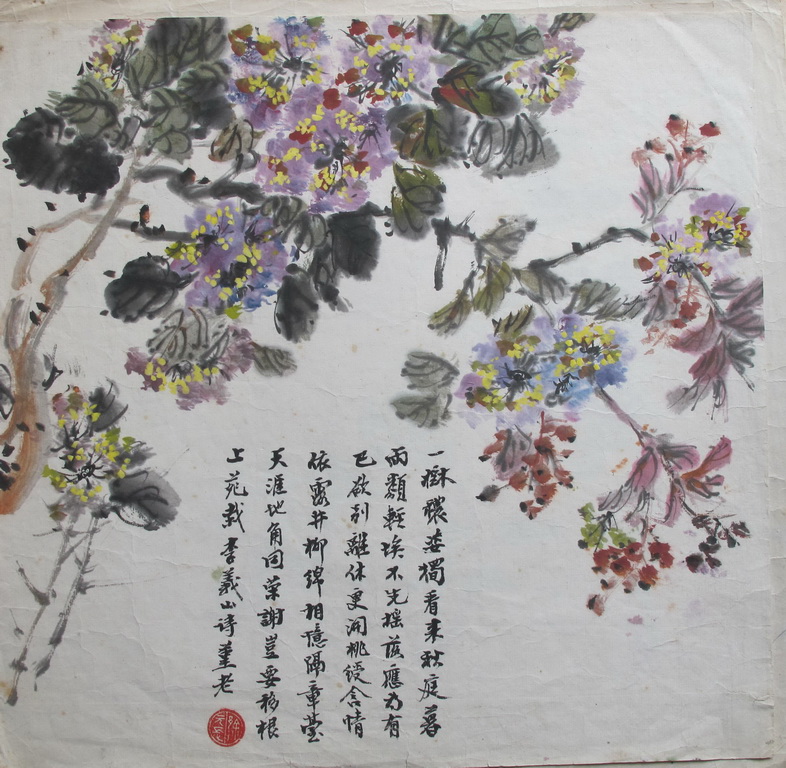 一樹穠姿獨看来秋庭暮
雨類輕埃不先摇落應为有
已欲别離休更開桃綬含情
依露井柳綿相憶隔章臺
天涯地角同榮謝豈要移根
上苑栽李義山诗董老